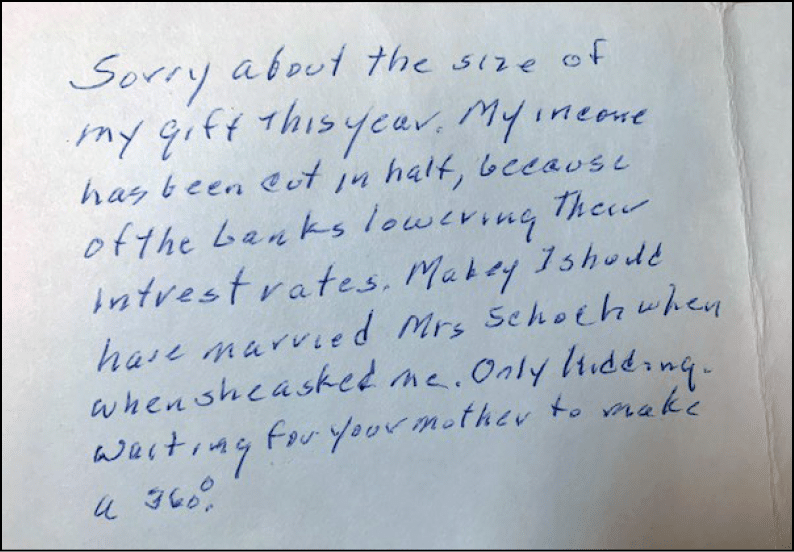 Sorry about the size of
my gift this year. My income
has been cut in half, because
of the banks lowering their
intrest rates. Makey I should
have married Mrs Schoch when
when she asked me. Only kidding.
waiting for your mother to make
a 360°.